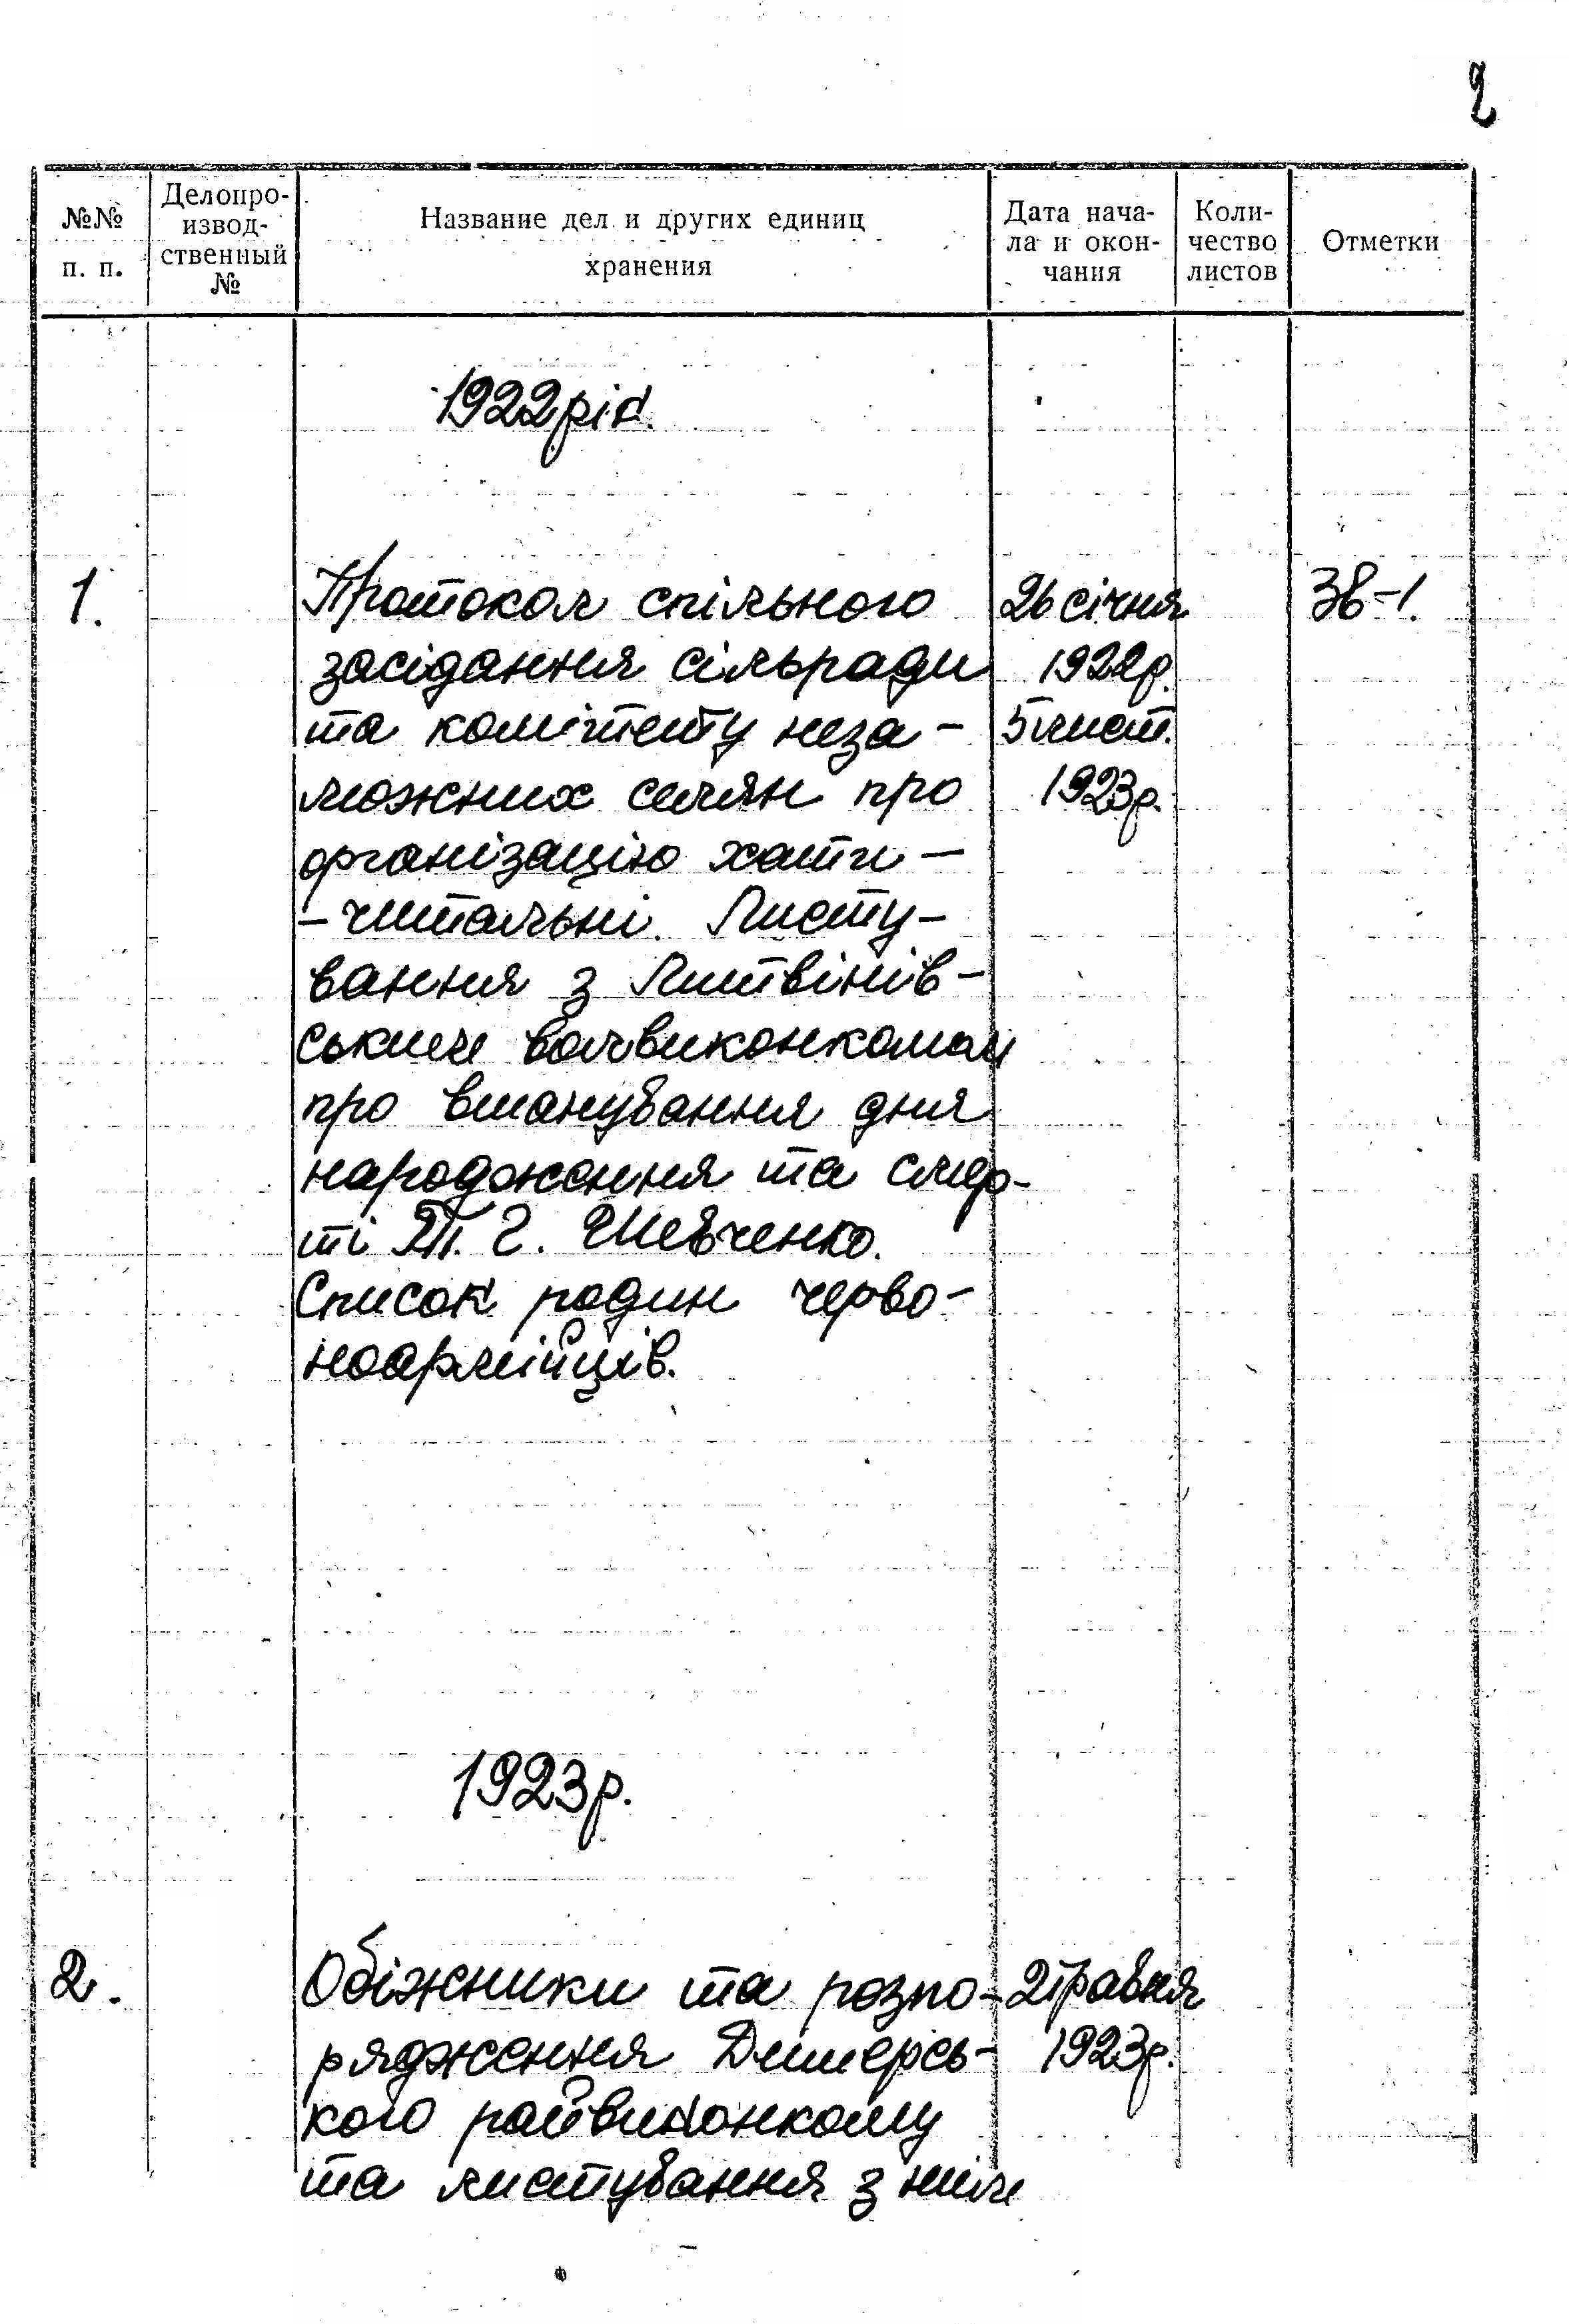 2
№№ п. п.
Делопро-
извод-
ственный
№
Название дел и других единиц
хранения
Дата нача-
ла и окон-
чания
Коли-
чество
листов
Отметки
1922 рік.
1. Протокол спільного 26 січня 38-1.
засідання сільради 1922р.
та комітету неза- 5 лист.
можних селян про 1923р.
організацію хати-
-читальні. Листу-
вання з Литвінів-
ським волвиконкомом
про вшанування дня
народження та смер-
ті Т. Г. Шевченко.
Список родин черво-
ноармійців.
1923р.
2. Обіжники та розпо- 2 травня
рядження Димерсь- 1923р.
кого райвиконкому
та листування з ним